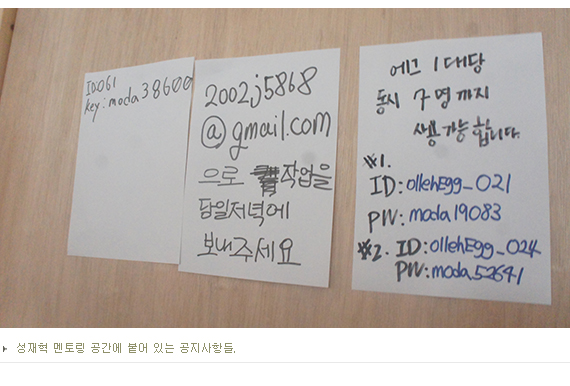 ID061
key: moda38600
2002j5868
@gmail.com
으로 작업을
당일저녁에
보내주세요
에그 1대당
동시 7명까지
사용가능합니다.
※1.
ID: ollehEgg_021
PW: moda19083
※2. ID: ollehEgg_024
PW: moda52641
성재혁 멘토링 공간에 붙어 있는 공지사항들.